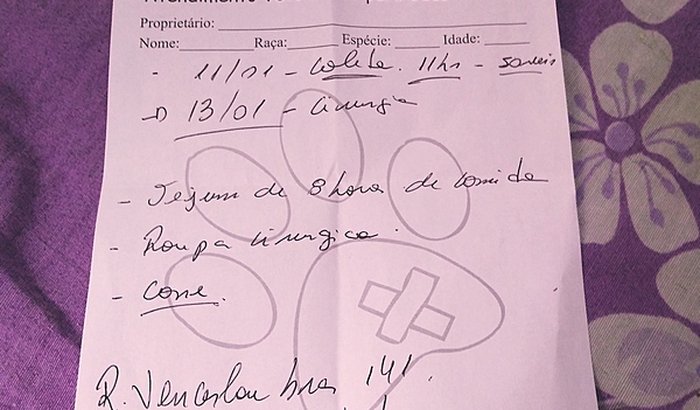 Atendimento
Proprietário:
Nome: Raça: Espécie: Idade:
- 11/01 - Coleta. 11hs -
→ 13/01 - Cirurgia
- Jejum de 8 hora de comida
- Roupa Cirurgica.
- Cone.
R. Venceslau bras 141.